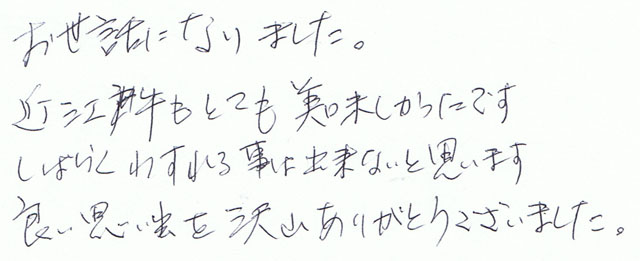 お世話になりました。
近江牛もとても美味しかったです
しばらくわすれる事は出来ないと思います
良い思い出を沢山ありがとうございました。